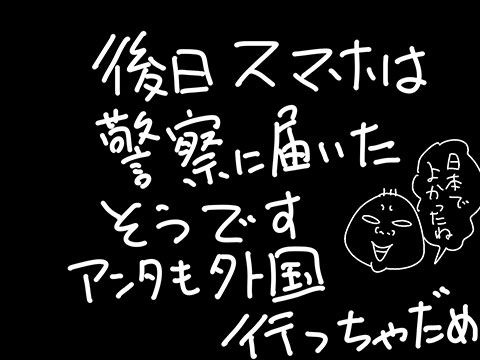 後日スマホは
警察に届いた
そうです
アンタも外国
行っちゃだめ
日本で
よかったね